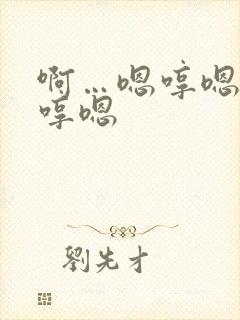 啊…嗯哼嗯
哼嗯
劉先才